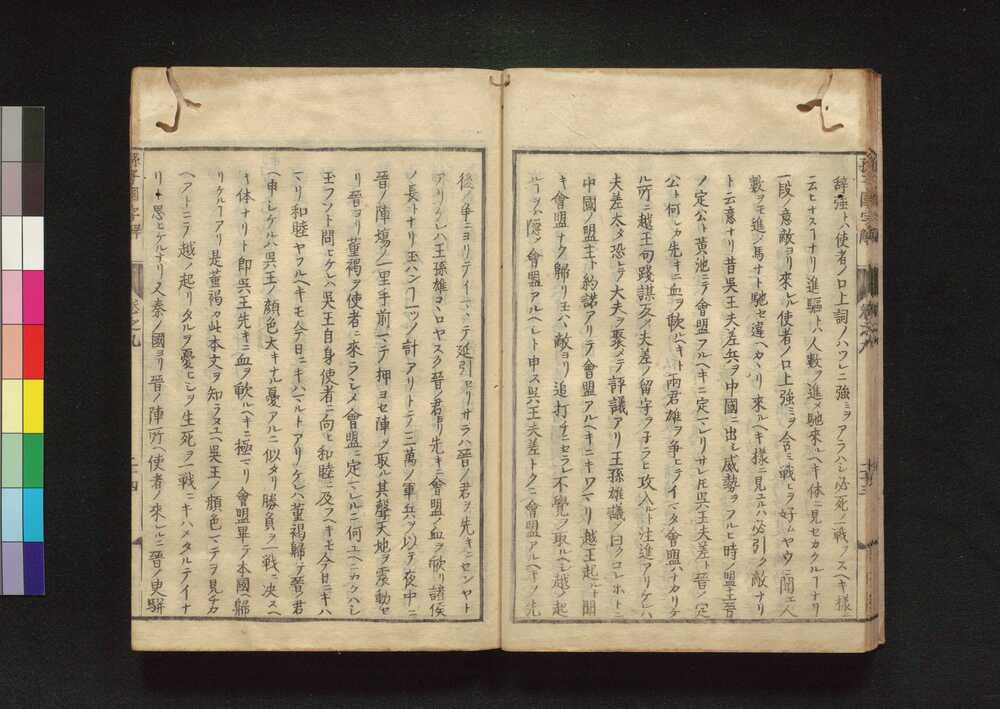 辞強トハ使者ノ口上詞ノハツレニ強ミヲアラハシ必死ノ一戰ヲスヘキ様
ニ云ヒナスヿナリ進驅トハ人數ヲ進メ馳來ルヘキ体ニ見セカクルヿナリ
一段ノ意敵ヨリ來レル使者ノ口上強ミヲ含ミ戰ヒヲ好ムヤウニ聞エ人
數ヲモ進メ馬ナト馳セ違ヘカヽリ來ルヘキ様ニ見エルハ必引ク敵ナリ
ト云意ナリ昔呉王夫差兵ヲ中國ニ出シ威勢ヲフルヒ時ノ盟主晉
ノ定公ト黄池ニテ會盟アルヘキニ定マレリサレ𪜈呉王夫差ト晉ノ定
公ト何レカ先キニ血ヲ歃ルヘキト兩君雄ヲ争ヒテイマタ會盟ハナカリケ
ル所ニ越王句踐謀叛メ夫差ノ留守ヲ子ラヒ攻入ルト注進アリケレハ
夫差大タ恐レテ大夫ヲ聚メテ評議アリ王孫雄議メ曰クコレホトニ
中國ノ盟主ト約諾アリテ會盟アルヘキニキワマリ越王起ルト聞
キ會盟ナク歸リ玉ハヽ敵ヨリ追打チニセラレ不覺ヲ取ルヘシ越ノ起
ルヿヲハ隱メ會盟アルヘシト申ス呉王夫差トクニ會盟アルヘキヲ先
後ノ争ニヨリテイマヽテ延引セリサラハ晉ノ君ヲ先キニセンヤト
アリケレハ王孫雄コヽロヤスク晉ノ君ヨリ先キニ會盟ノ血ヲ歃リ諸侯
ノ長トナリ玉ハン一ツノ計アリトテ三萬ノ軍兵ヲ以テ夜中ニ
晉ノ陣塲ノ一里手前マテ押ヨセ陣ヲ取ル其聲天地ヲ震動セ
リ晉ヨリ董褐ヲ使者ニ來ラシメ會盟ニ定マレルニ何ユヘニカクハシ
玉フソト問ヒケレハ呉王自身使者ニ向ヒ和睦ニ及フヘキモ今日ニキハ
マリ和睦ヤフルヘキモ今日ニキハマルトアリケレハ董褐歸テ晉ノ君
ヘ申シケルハ呉王ノ顔色大キナル憂アルニ似タリ勝負ヲ一戰ニ决スヘ
キ体ナリト即呉王先キニ血ヲ歃ルヘキニ極マリ會盟畢テ本國ヘ歸
リケルヿアリ是董褐カ此本文ヲ知ラユヘ呉王ノ顔色マテヲ見チカ
ヘアトニテ越ノ起リタルヲ憂ヒシヲ生死ヲ一戰ニキハメタルテイナ
リト思ヒケルナリ又秦ノ國ヨリ晉ノ陣所ヘ使者ノ來レルニ晉ノ臾駢